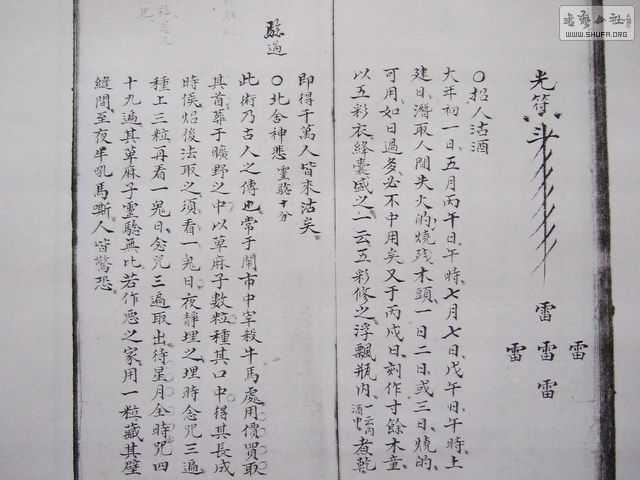 光符斗
雷
雷雷雷
雷
〇招人沽酒
大年初一日、五月丙午日、午時、七月七日、戊午日、午時、上
建日、潛取人間失火的燒殘木頭、一日二日、或三日燒的
可用、如日過多、必不中用矣、又于丙戌日、刻作寸餘木童、
以五彩衣絳囊盛之、一云五彩修之、浮飄瓶内、一云内酒中、煮乾
即得千萬人皆來沽矣、
驗過
〇北舍神悲 靈驗十分
此術乃古人之傳也、常于鬧市中宰殺牛馬處、用價買取
其首、葬于曠野之中、以草麻子數粒、種其口中、得其長成
時候、炤後法取之、須看一鬼日、夜靜埋之、埋時念咒三遍
種上三粒、再看一鬼日、念咒三遍、取出、待星月全時、咒四
十九遍、其草麻子靈驗無比、若作惡之家、用一粒藏其壁
縫間、至夜半吼馬嘶、人皆驚恐、
書藝公社
WWW.SHUFA.ORG